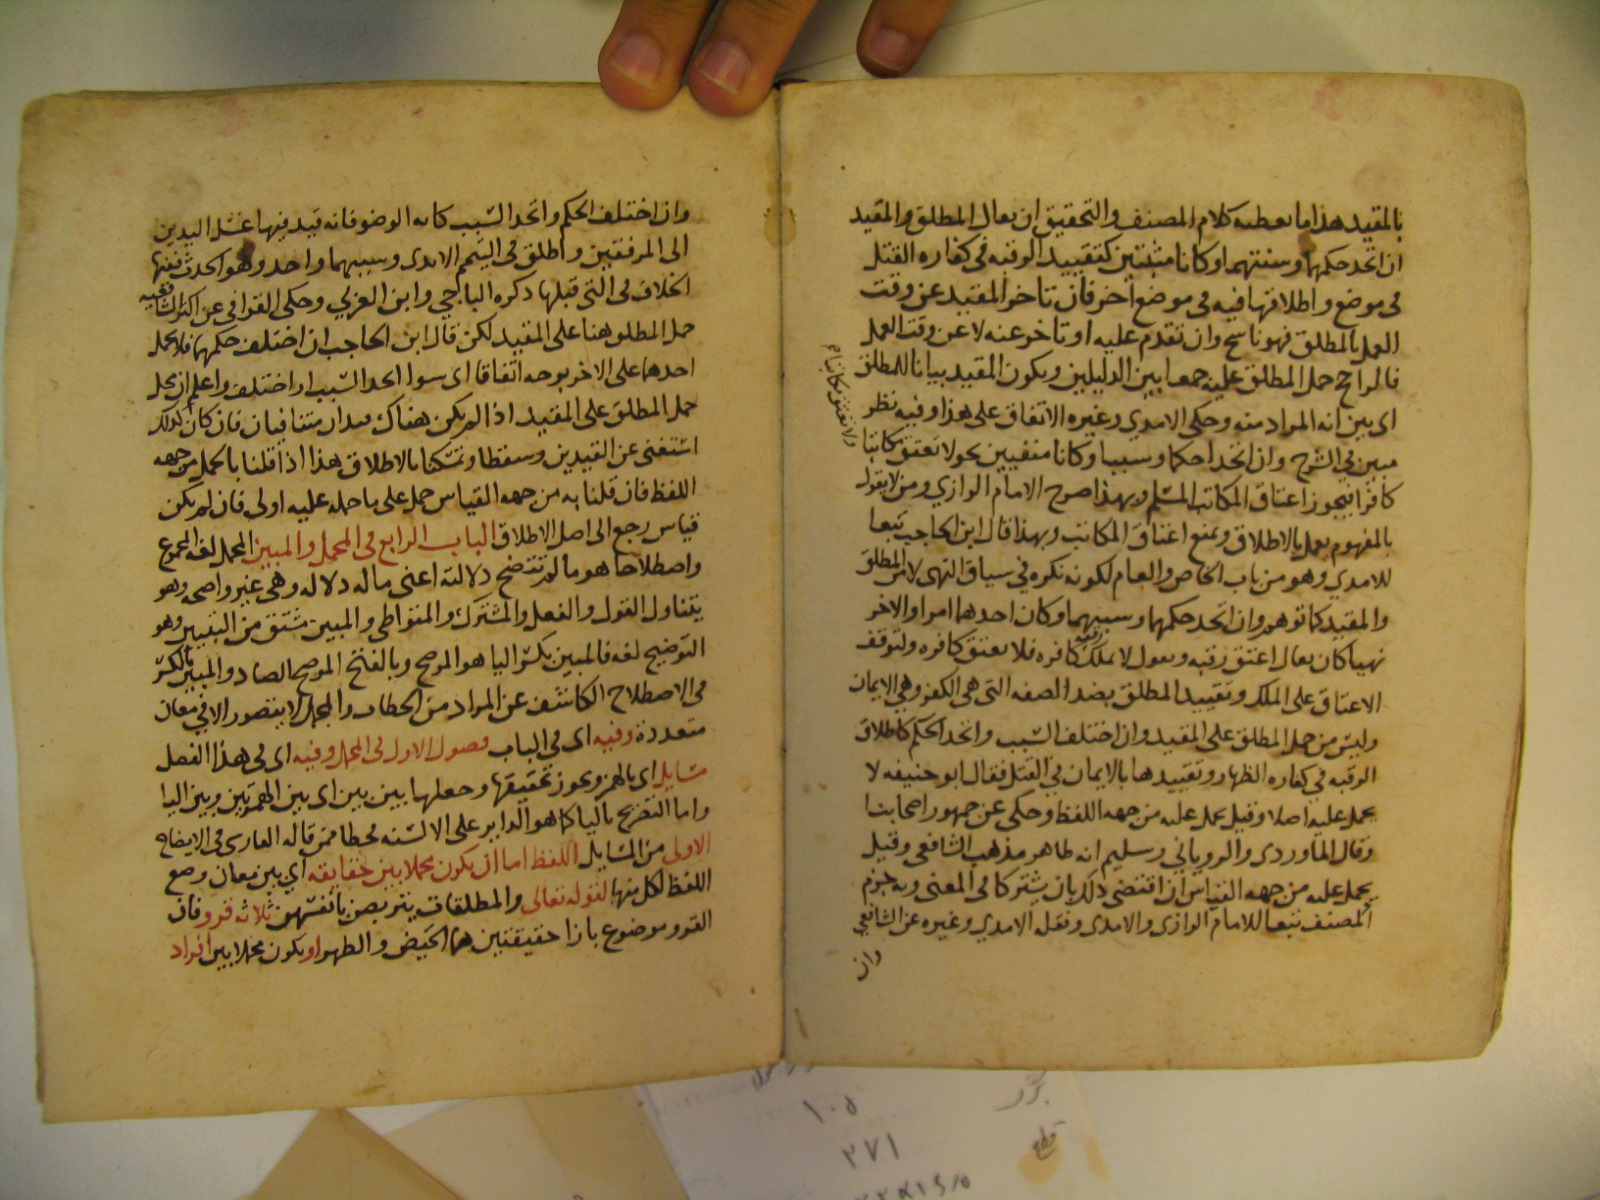 بالمقيد هذا ما يعطيه كلام المصنف والتحقيق ان يقال المطلق والمقيد
ان اتحد حكمهما وسببهما وكانا مثبتين كتقييد الرقبه في كفاره القتل
في موضع واطلاقها فيه في موضع اخر فان تاخر المقيد عن وقت
العمل بالمطلق فهو ناسخ وان تقدم عليه او تاخر عنه لا عن وقت العمل
فالراجح حمل المطلق عليه جمعا بين الدليلين ويكون المقيد بيانا للمطلق
اى بين انه المراد منه وحكى الامدي وغيره الاتفاق على هذا وفيه نظر
مبين في الشرح وان اتحدا حكما وسببا وكانا منفيين نحو لا تعتق مكاتبا
ولا تعتق مكاتبا
كافرا فيجوز اعتاق المكاتب المسلم وبهذا صرح الامام الرازي ومن لا يقول
بالمفهوم يعمل بالاطلاق ويمنع اعتاق المكاتب وبهذا قال ابن الحاجب تبعا
للامدي وهو من باب الخاص والعام لكونه نكره في سياق النهى لا من المطلق
والمقيد كما توهم وان اتحد حكمهما وسببهما وكان احدهما امرا والاخر
نهيا كان يقال اعتق رقبه ويقول لا تملك رقبه كافره فلا يعتق كافره ولتوقف
الاعتاق على الملك وتقييد المطلق بضد الصفه التى هي الكفر وهي الايمان
وليس من حمل المطلق على المقيد وان اختلف السبب واتحد الحكم كاطلاق
الرقبه في كفاره الظهار وتقييدها بالايمان في القتل فقال ابو حنيفه لا
يحمل عليه اصلا وقيل يحمل عليه من جهه اللفظ وحكى عن جمهور اصحابنا
وقال الماوردى والروياني وسليم انه ظاهر مذهب الشافعى وقيل
يحمل عليه من جهه القياس ان اقتضى ذلك بان يشتركا في المعنى وبه جزم
المصنف تبعا للامام الرازى والامدى ونقله الامدي وغيره عن الشافعي
وان
وان اختلف الحكم واتحد السبب كايه الوضو فانه قيد فيها غسل اليدين
الى المرفقين واطلق في التيمم الايدى وسببهما واحد وهو الحدث ففيها
الخلاف في التي قبلها ذكره الباجي وابن العربي وحكى القرافي عن اكثر الشافعيه
حمل المطلق هنا على المقيد لكن قال ابن الحاجب ان اختلف حكمهما فلا يحمل
احدهما على الاخر بوجه اتفاقا اى سوا اتحد السبب او اختلف واعلم ان محل
حمل المطلق على المقيد اذا لم يكن هناك قيدان متنافيان فان كان كذلك
استغنى عن القيدين وسقطا وتمسكنا بالاطلاق هذا اذا قلنا بالحمل من جهه
اللفظ فان قلنا به من جهه القياس حمل على ما حمله عليه اولى فان لم يكن
قياس رجع الى اصل الاطلاق الباب الرابع في المجمل والمبين المجمل لغه المجموع
واصطلاحا هو ما لم تتضح دلالته اعنى ماله دلاله وهى غير واضحه وهو
يتناول القول والفعل والمشترك والمتواطي والمبين مشتق من التبيين وهو
التوضيح لغه فالمبين بكسر اليا هو الموضح وبالفتح الموضح الضاد والمبين بالكسر
في الاصطلاح الكاشف عن المراد من الخطاب والمجمل لا يتصور الا في معان
متعدده وفيه اى في الباب فصول الاول في المجمل وفيه اى في هذا الفصل
مسايل اى بالهمز ويجوز تحقيقها وجعلها بين بين اى بين الهمزتين وبين اليا
واما التصريح باليا كما هو الداير على الالسنه فخطا ممن قاله الفارسى في الايضاح
الاولى من المسايل اللفظ اما ان يكون مجملا بين حقايقه اي بين معان وضع
اللفظ لكل منها لقوله تعالى والمطلقات يتربصن بانفسهن ثلاثه قرو فان
القرو موضوع بازا حقيقتين هما الحيض والطهر او يكون مجملا بين افراد
١٠٥
٢٧١